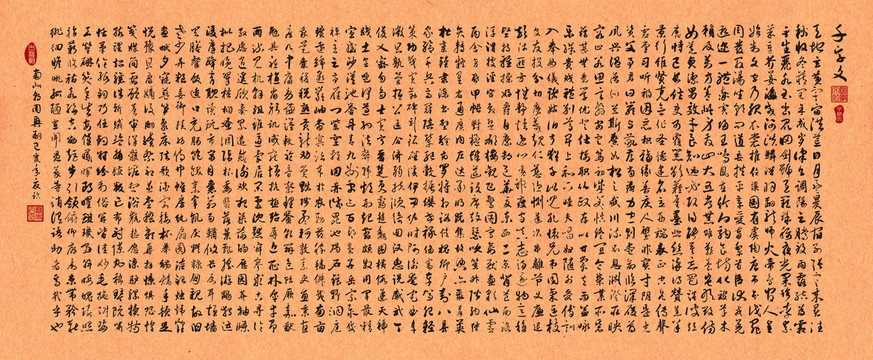 千字文
天地玄黄宇宙洪荒日月盈昃辰宿列张寒来暑往
秋收冬藏闰余成岁律吕调阳云腾致雨露结为霜
金生丽水玉出昆冈剑号巨阙珠称夜光果珍李柰
菜重芥姜海咸河淡鳞潜羽翔龙师火帝鸟官人皇
始制文字乃服衣裳推位让国有虞陶唐吊民伐罪
周发殷汤坐朝问道垂拱平章爱育黎首臣伏戎羌
遐迩一体率宾归王鸣凤在竹白驹食场化被草木
赖及万方盖此身发四大五常恭惟鞠养岂敢毁伤
女慕贞洁男效才良知过必改得能莫忘罔谈彼短
靡恃己长信使可覆器欲难量墨悲丝染诗赞羔羊
景行维贤克念作圣德建名立形端表正空谷传声
虚堂习听祸因恶积福缘善庆尺璧非宝寸阴是竞
资父事君曰严与敬孝当竭力忠则尽命临深履薄
夙兴温凊似兰斯馨如松之盛川流不息渊澄取映
容止若思言辞安定笃初诚美慎终宜令荣业所基
籍甚无竟学优登仕摄职从政存以甘棠去而益咏
乐殊贵贱礼别尊卑上和下睦夫唱妇随外受傅训
入奉母仪诸姑伯叔犹子比儿孔怀兄弟同气连枝
交友投分切磨箴规仁慈隐恻造次弗离节义廉退
颠沛匪亏性静情逸心动神疲守真志满逐物意移
坚持雅操好爵自縻都邑华夏东西二京背邙面洛
浮渭据泾宫殿盘郁楼观飞惊图写禽兽画彩仙灵
丙舍傍启甲帐对楹肆筵设席鼓瑟吹笙升阶纳陛
弁转疑星右通广内左达承明既集坟典亦聚群英
杜稿钟隶漆书壁经府罗将相路侠槐卿户封八县
家给千兵高冠陪辇驱毂振缨世禄侈富车驾肥轻
策功茂实勒碑刻铭磻溪伊尹佐时阿衡奄宅曲阜
微旦孰营桓公匡合济弱扶倾绮回汉惠说感武丁
俊乂密勿多士寔宁晋楚更霸赵魏困横假途灭虢
践土会盟何遵约法韩弊烦刑起翦颇牧用军最精
宣威沙漠驰誉丹青九州禹迹百郡秦并岳宗泰岱
禅主云亭雁门紫塞鸡田赤城昆池碣石钜野洞庭
旷远绵邈岩岫杳冥治本于农务兹稼穑俶载南亩
我艺黍稷税熟贡新劝赏黜陟孟轲敦素史鱼秉直
庶几中庸劳谦谨敕聆音察理鉴貌辨色贻厥嘉猷
勉其祗植省躬讥诫宠增抗极殆辱近耻林皋幸即
两疏见机解组谁逼索居闲处沉默寂寥求古寻论
散虑逍遥欣奏累遣戚谢欢招渠荷的历园莽抽条
枇杷晚翠梧桐蚤凋陈根委翳落叶飘摇游鹍独运
凌摩绛霄耽读玩市寓目囊箱易輶攸畏属耳垣墙
具膳餐饭适口充肠饱饫烹宰饥厌糟糠亲戚故旧
老少异粮妾御绩纺侍巾帷房纨扇圆洁银烛炜煌
昼眠夕寐蓝笋象床弦歌酒宴接杯举觞矫手顿足
悦豫且康嫡后嗣续祭祀烝尝稽颡再拜悚惧恐惶
笺牒简要顾答审详骸垢想浴执热愿凉驴骡犊特
骇跃超骧诛斩贼盗捕获叛亡布射僚丸嵇琴阮啸
恬笔伦纸钧巧任钓释纷利俗并皆佳妙毛施淑姿
工颦妍笑年矢每催曦晖朗曜璇玑悬斡晦魄环照
指薪修祜永绥吉劭矩步引领俯仰廊庙束带矜庄
徘徊瞻眺孤陋寡闻愚蒙等诮谓语助者焉哉乎也
南北朝周兴嗣己亥年